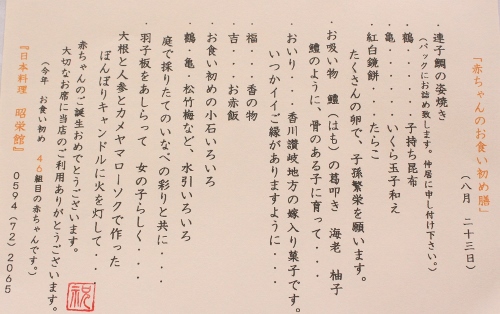 『赤ちゃんのお食い初め膳』
（八月　二十三日）
・連子鯛の姿焼き
（パックにお詰め致します。仲居に申し付け下さい。）
・鶴・・・・・子持ち昆布
・亀・・・・いくら玉子和え
・紅白鏡餅・・・・たらこ
たくさんの卵で、子孫繁栄を願います。
・お吸い物　鱧（はも）の葛叩き　海老　柚子
鱧のように、骨のある子に育って・・・・
・おいり・・・香川讃岐地方の嫁入り菓子です。
いつかイイご縁がありますように・・・・
・福・・・香の物
・吉・・・お赤飯
・お食い初めの小石いろいろ
・鶴・亀・松竹梅など、水引いろいろ
庭で採りたてのいなべの彩りと共に・・・
・羽子板をあしらって　女の子らしく・・・
・大根と人参とカメヤマローソクで作った
ぼんぼりキャンドルに火を灯して・・・
赤ちゃんのご誕生おめでとうございます。
大切なお席に当店のご利用ありがとうございます。
（今年　お食い初め　４６組目の赤ちゃんです。）
『日本料理　昭栄館』　０５９４（７２）２０６５
祝